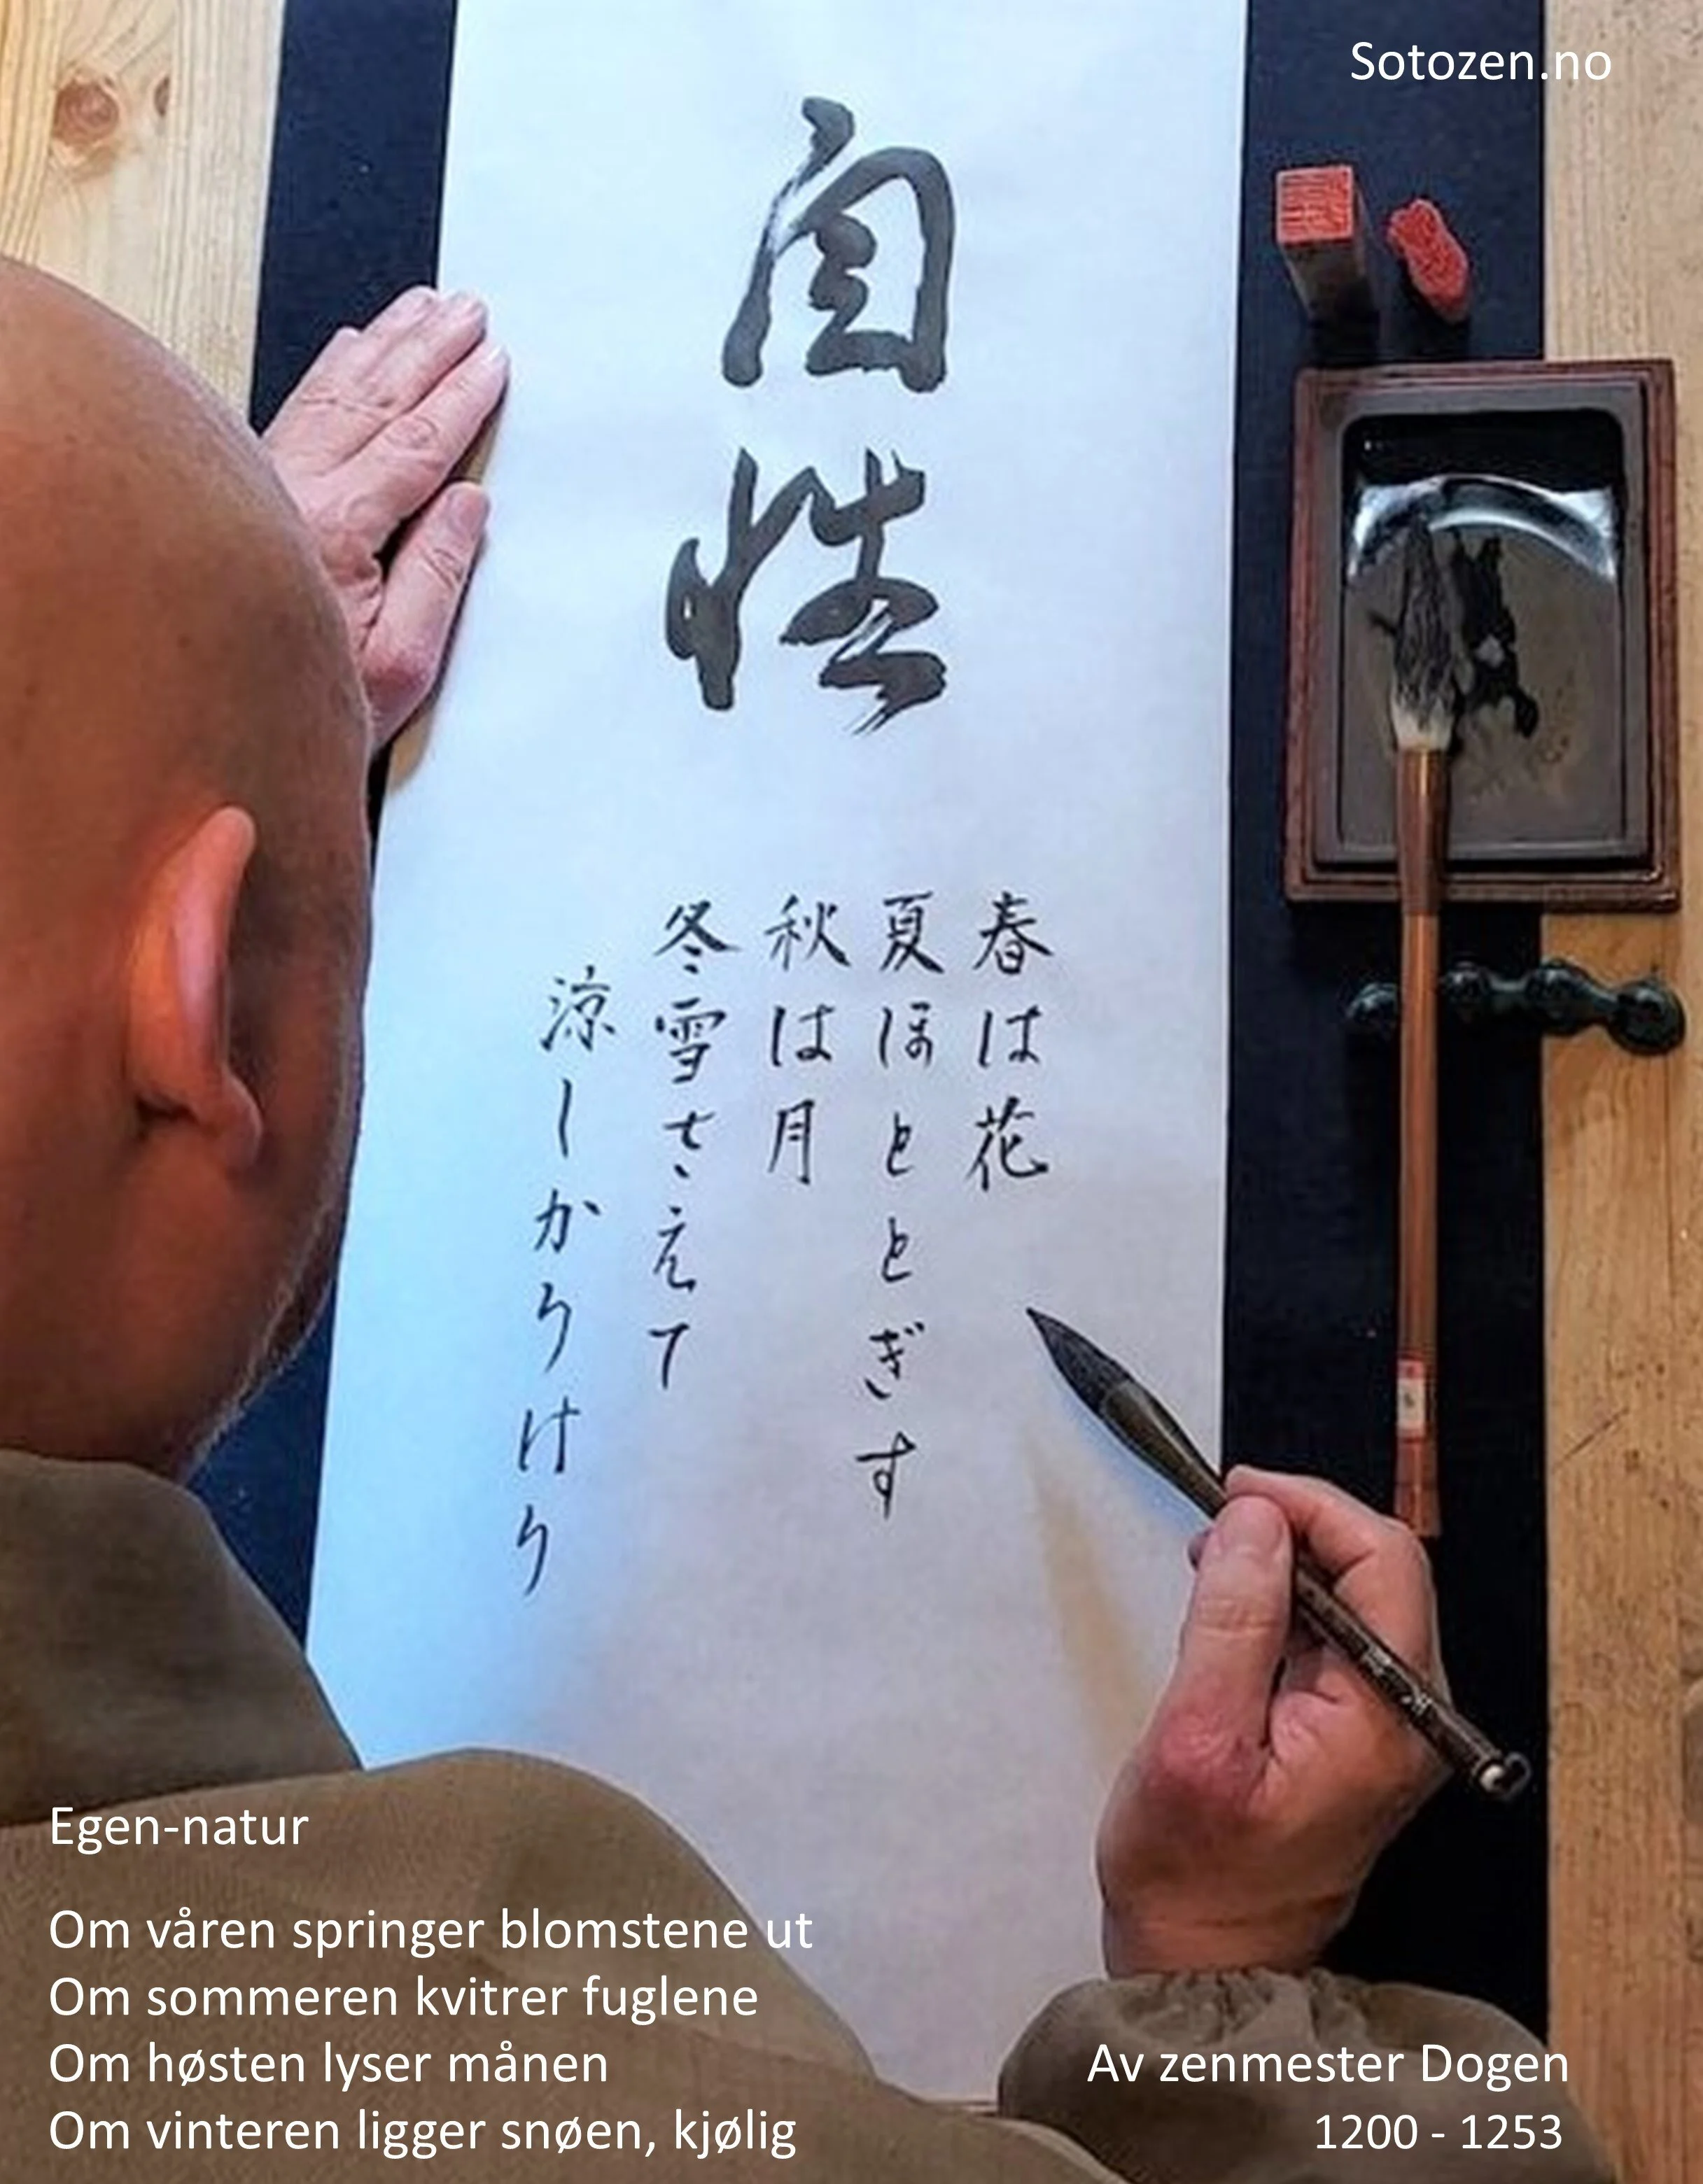 Sotozen.no
自性
春は花
夏ほととぎす
秋は月
冬雪さえて
涼しかりけり
Egen-natur
Om våren springer blomstene ut
Om sommeren kvitrer fuglene
Om høsten lyser månen
Om vinteren ligger snøen, kjølig
Av zenmester Dogen
1200 - 1253